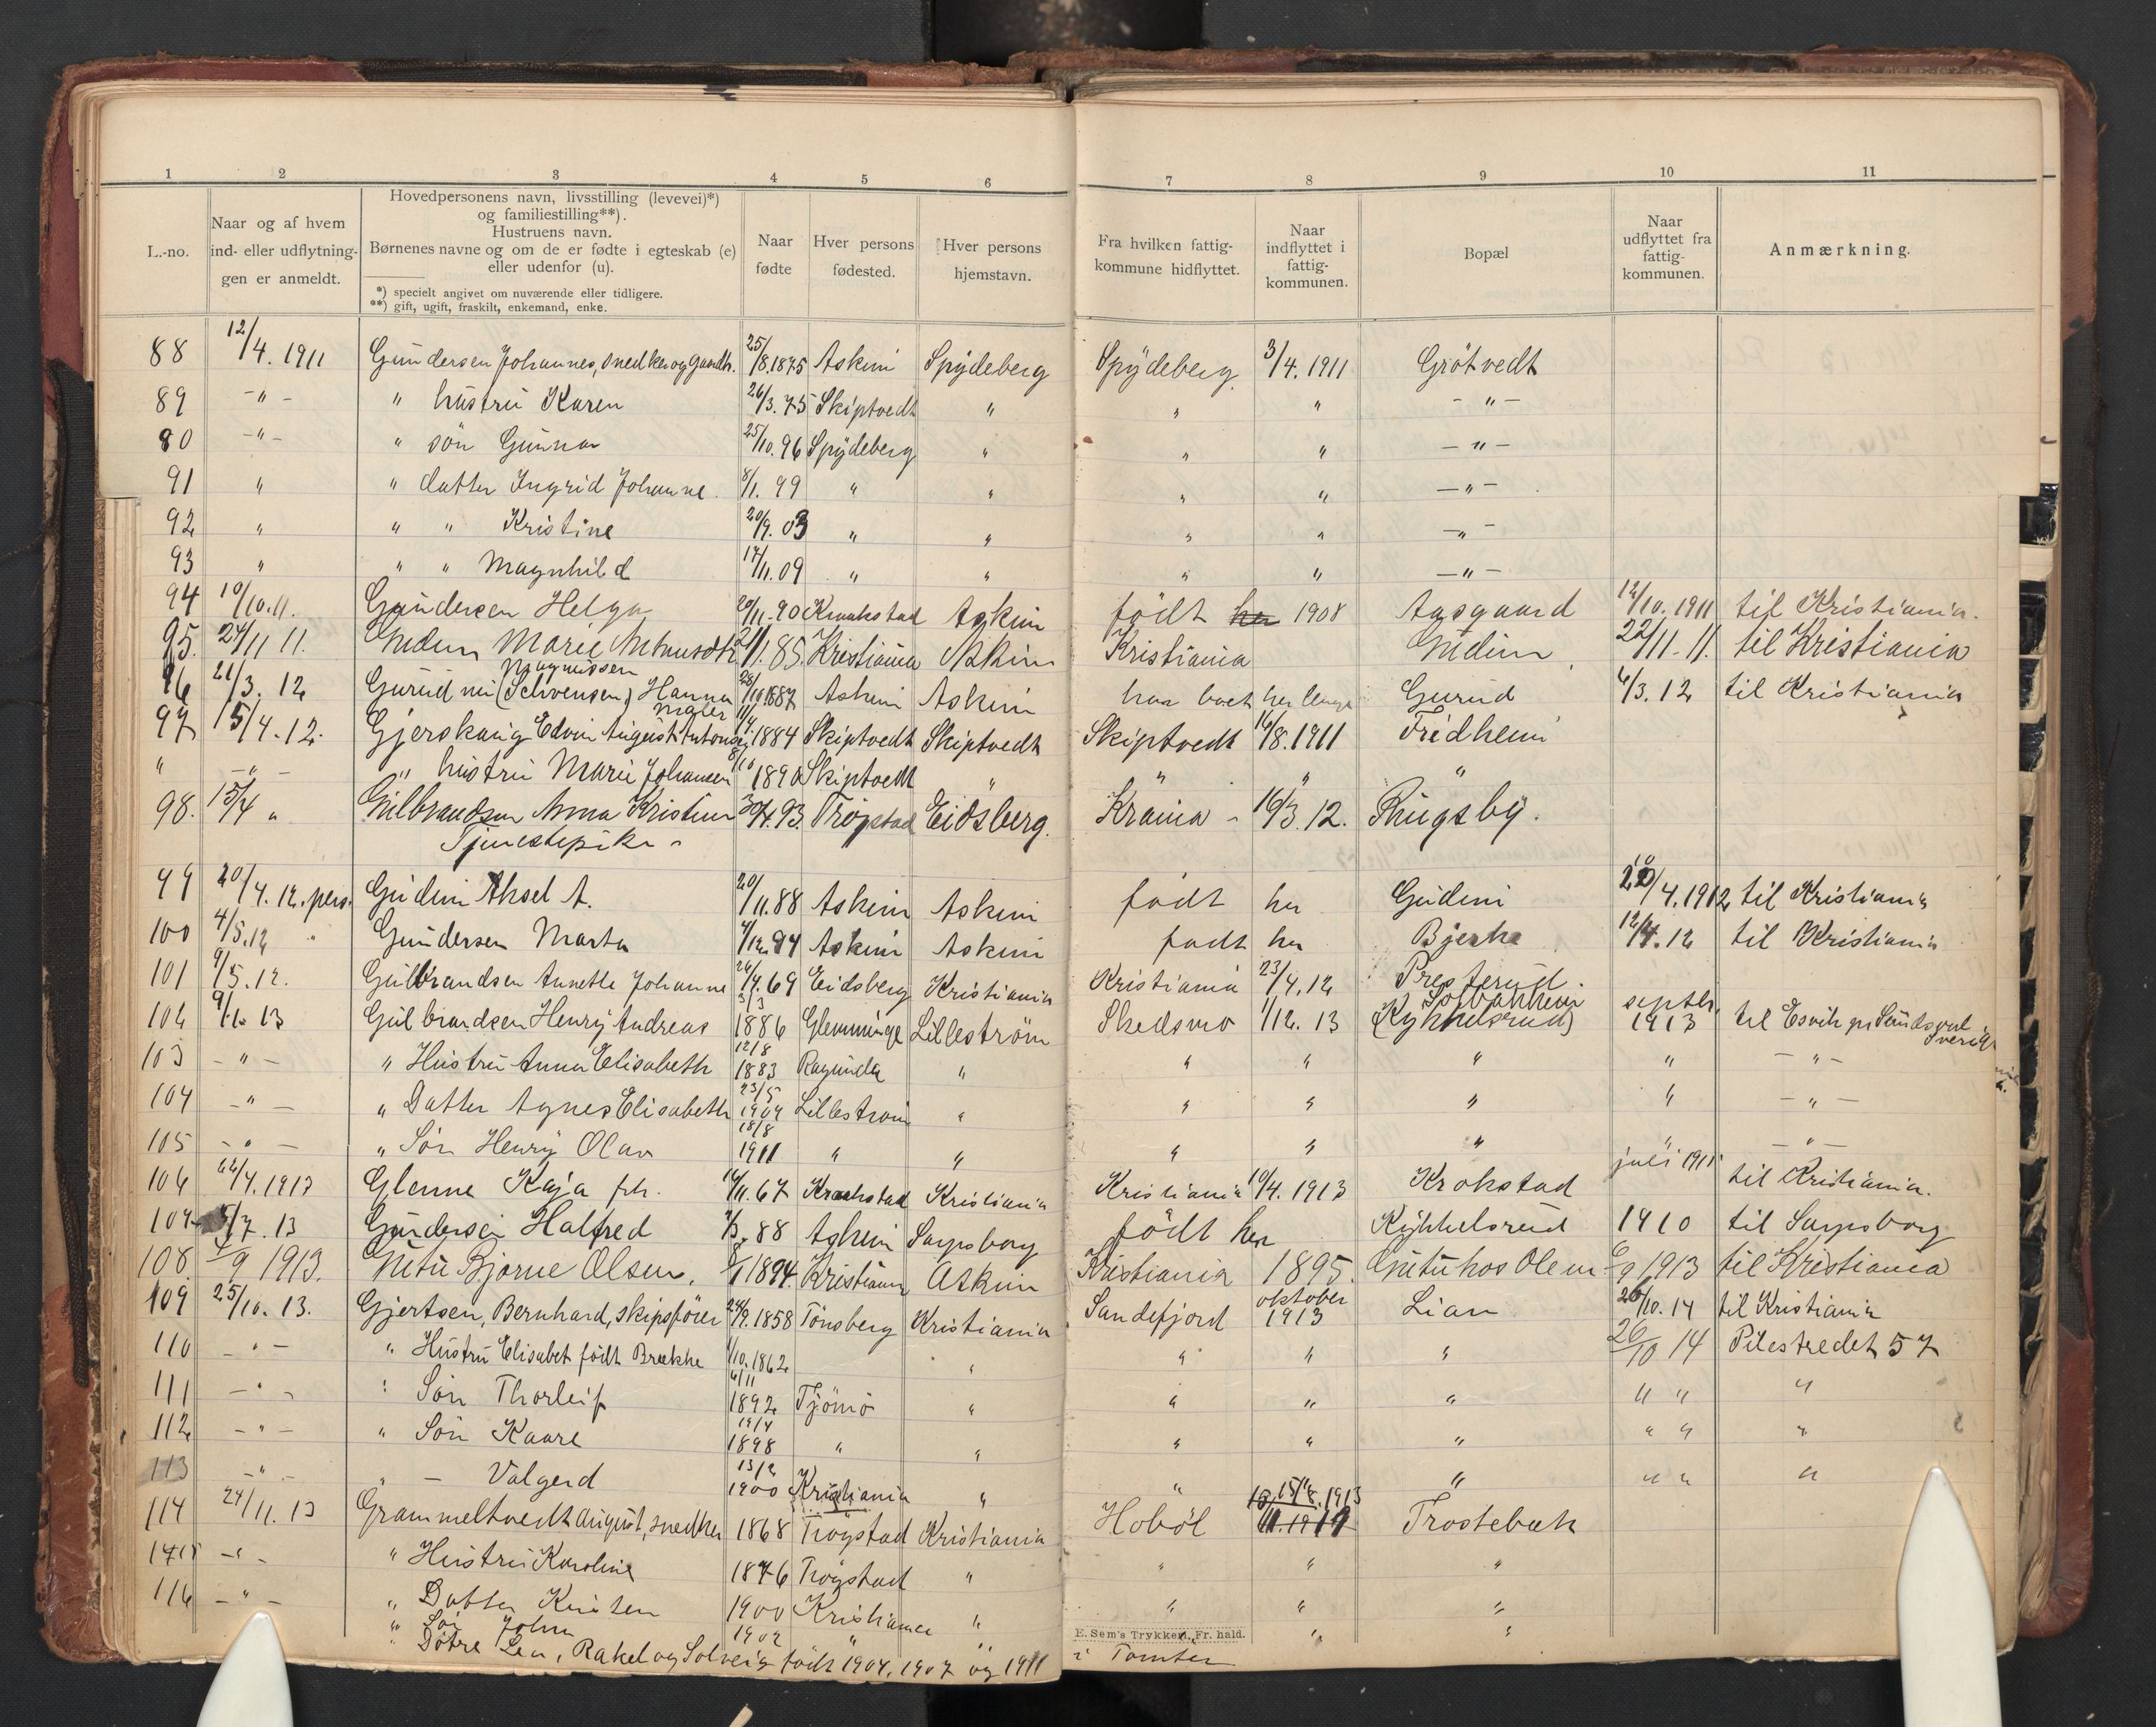 1 2 3 4 5 6 7 8 9 10 11
L.-no.
Naar og af hvem
ind- eller udflytnin-
gen er anmeldt.
Hovedpersonens navn, livsstilling (levevei)*)
og familiestilling**).
Hustruens navn.
Børnenes navne og om de er fødte i egteskab (e)
eller udenfor (u).
*) specielt angivet om nuværende eller tidligere.
**) gift, ugift, fraskilt, enkemand, enke.
Naar
fødte
Hver persons
fødested.
Hver persons
hjemstavn.
Fra hvilken fattig-
kommune hidflyttet.
Naar
indflyttet i
fattig-
kommunen.
Bopæl
Naar
udflyttet fra
fattig-
kommunen.
Anmærkning.
88 12/4. 1911 Gundersen Johannes, snedker og gaardbr. 25/8.1875 Askim Spydeberg Spydeberg 3/4. 1911 Grøtvedt
89 -"- " hustru Karen 26/3.75 Skiptvedt " " " -"-
80 -"- " søn Gunnar 25/10.96 Spydeberg " " " -"-
91 " " datter Ingrid Johanne. 8/1. 99 " " " " -"-
92 " " " Kristine 20/9. 03 " " " " -"-
93 " " " Magnhild 17/11.09 " " " " -"-
94 10/10.11. Gundersen Helga 20/11.90 Kraakstad Askim født her 1908 Aasgaard 12/10.1911 til Kristiania.
95. 24/11 11. Gudim Marie 2/1.85. Kristiania Askim Kristiania Gudim 22/11-11. til Kristiania
Magnussen
96 21/3. 12 Gurud (Schvensen) Hanna 28/10.1887 Askim Askim har boet her lenge Gurud 4/3. 12 til Kristiania
maler
97 15/4.12. Gjerskaug Edvin August 11/4 1884 Skiptvedt Skiptvedt Skiptvedt 16/8.1911 Fredheim
" -"- " hustru Marie Johansen 8/10 1890 Skiptvedt " " " "
98. 15/4 " Gulbrandsen Anna Kristine 30/4.93. Trøgstad Eidsberg. Krania - 16/3.12. Ringsby.
Tjenestepike -
99 20/4.12. pers. Gudim Aksel A. 20/11.88 Askim Askim født her Gudim 20/4.1912 til Kristiania
100 4/5.12 " Gundersen Marta 4/12.94 Askim Askim født her Bjerke 12/4.12 til Kristiania
101 9/5.12. Gulbrandsen Annette Johanne 26/4.69 Eidsberg Kristiania Kristiania 23/4.12 Presterud.
102 9/1. 13 Gulbrandsen Henry Andreas 3/3 1886 Glemminge Lillestrøm Skedsmo 1/12. 13 Solbakken (Kykkelsrud) septbr. 1913 til Esvik pr Sundsval Sverig
103 -"- " Hustru Anna Elisabeth 12/8 1883 Ragunda " " " " " -"-
104 -"- " Datter Agnes Elisabeth 23/5 1909 Lillestrøm " " " " " -"-
105 -"- " Søn Henry Olav 18/8 1911 " " " " " " -"-
106 22/4.1913 Glenne Kaja frk. 14/11.67 Kraakstad Kristiania Kristiania 10/4. 1913 Krokstad juli 1911 til Kristiania.
107 5/7. 13 Gundersen Halfred 88 Askim Sarpsborg født her Kykkelsrud 1910 til Sarpsborg
108 /9 1913. Gutu Bjarne Olsen. /1 1894 Kristiania Askim Kristiania 1895. Gutu hos Olsen 6/9 1913 til Kristiania
109 25/10. 13. Gjertsen, Bernhard, skipsfører 24/9.1858 Tønsberg Kristiania Sandefjord oktober 1913 Lian 26/10.14 til Kristiania
110 -"- " Hustru Elisabet født Brekke /10.1862 " " " " 26/10 14 Pilestredet 57
111 -"- : Søn Thorleif 4/11 1892 Tjømø " " " " " " "
112 -"- " Søn Kaare 19/4 1898 " " " " " " " "
113 -"- " - Valgerd 13/2 1900 Kristiania " " " " " "
114 24/11. 13 Grammeltvedt August, snedker 1868 Trøgstad Kristiania Hobøl 15/8.1913 Trostebæk
115 -"- " Hustru Karoline 1876 Trøgstad " " " "
116 -"- " Datter Kristen 1900 Kristiania " " " "
" Søn John 1902 " " " "
E. Sem's Trykkeri, Fr. hald.
" Døtre Lea, Rakel og Solveig født 1904, 1907 og 1911 i Tomter